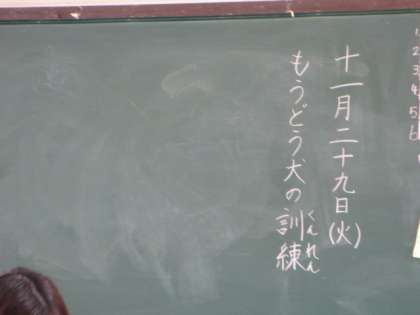 十一月二十九日(火)
もうどう犬の訓練
くんれん
1
2
3
4
5